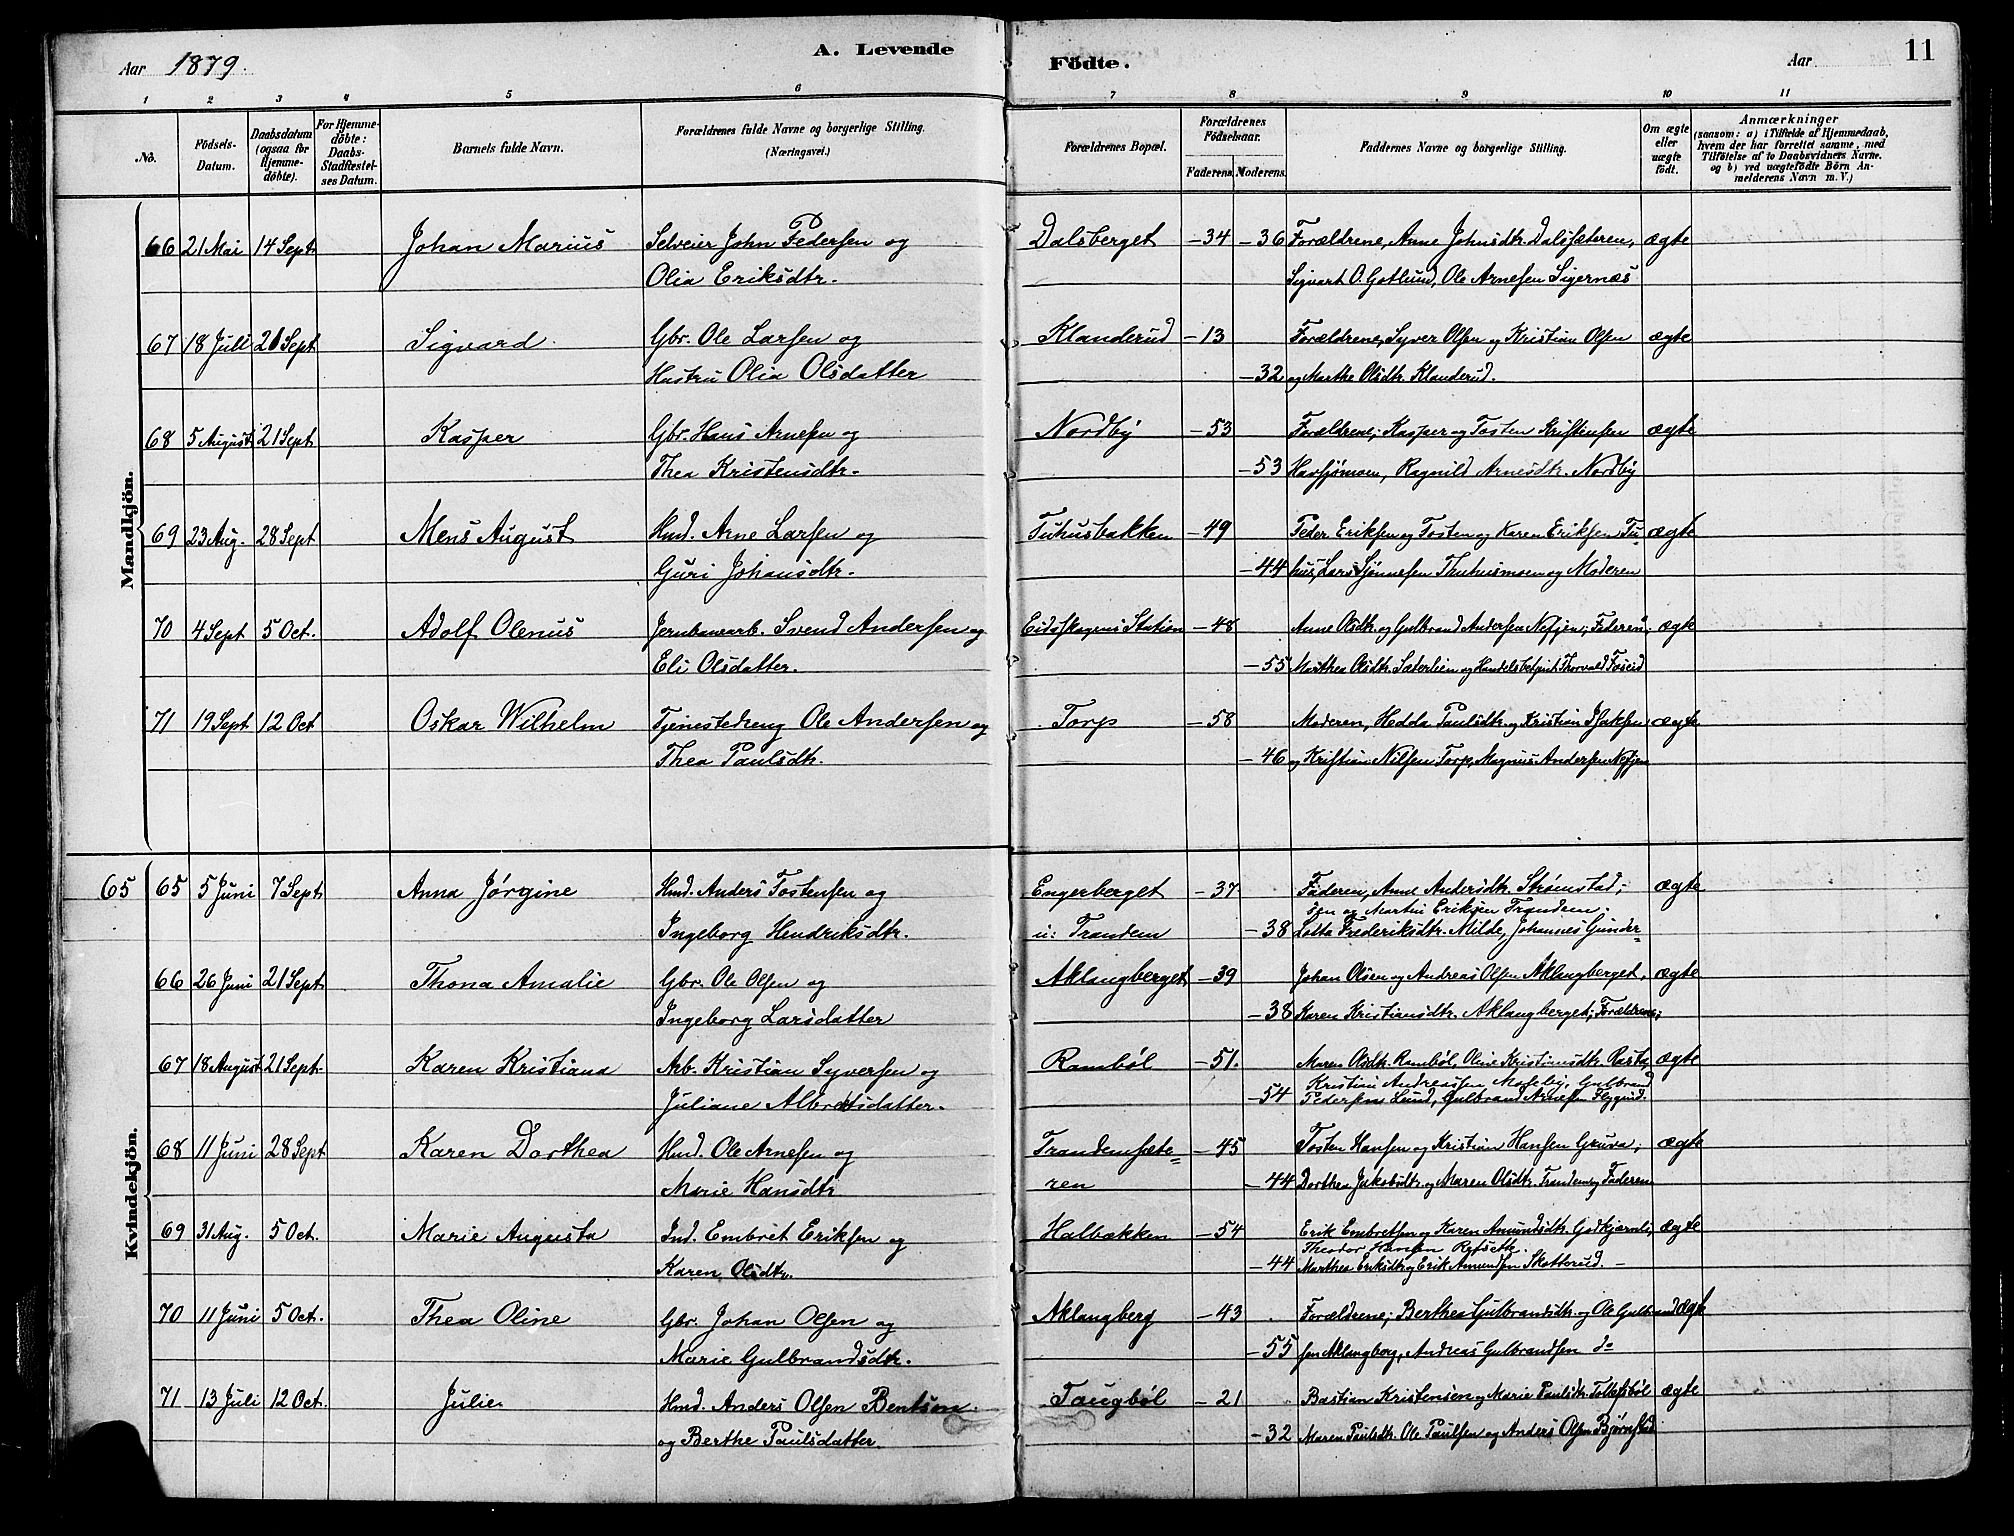 Aar 1879. A. Levende Födte. Aar 11
1 2 3 4 5 6 7 8 9 10 11
No. Födsels-Datum. Daabsdatum (ogsaa for Hjemme-döbte). For Hjemme-döbte: Daabs-Stadfæstelses Datum. Barnets fulde Navn. Forældrenes fulde Navne og borgerlige Stilling. (Næringsvei.) Forældrenes Bopæl. Forældrenes Födselsaar. Faderens. Moderens. Faddernes Navne og borgerlige Stilling. Om ægte eller uægte födt. Anmærkninger (saasom: a) i Tilfælde af Hjemmedaab, hvem der har forrettet samme, med Tilföielse af to Daabsvidners Navne, og b) ved uægtefödte Börn Anmelderens Navn m. V.)
Mandkjön.
66 21 Mai 14 Sept. Johan Marius Selveier John Pedersen og Dalsberget -34 -36 Forældrene, Anne Johnsdtr. Dalsæteren, ægte
Olia Eriksdtr. Sigvart O. Gotlund, Ole Arnesen Sigernæs
67 18 Juli 21 Sept Sigvard Gbr. Ole Larsen og Klanderud -13 Forældrene, Syver Olsen og Kristian Olsen ægte
Hustru Olia Olsdatter -32 og Marthe Olsdtr. Klanderud.
68 5 August 21 Sept Kasper Gbr. Hans Arnesen og Nordby -53 Forældrene; Kasper og Tosten Kristensen ægte
Thea Kristensdtr. -53 Havsjømoen, Ragnild Arnesdtr. Nordby
69 23 Aug. 28 Sept Mens August Hmd. Arne Larsen og Tuhusbakken -49 Peder Eriksen og Tosten og Karen Eriksen Tu- ægte
Guri Johansdtr. -44 hus, Lars Sjønnesen Thuhusmoen og Moderen
70 4 Sept 5 Oct. Adolf Olenus Jernbanearb. Svend Andersen og Eidsskogens Station -48 Anne Olsdtr. og Gulbrand Andersen Nefjen; Faderen, ægte
Eli Olsdatter. -55 Marthea Olsdtr. Sæterlien og Handelsbetjent Thorvald Foseid
71 19 Sept 12 Oct Oskar Wilhelm Tjenestedreng Ole Andersen og Torp -58 Moderen, Hedda Paulsdtr. og Kristian Isaksen ægte
Thea Paulsdtr. -46 og Kristian Nilsen Torp, Magnus Andersen Nefjen
Kvindekjön.
65 65 5 Juni 7 Sept. Anna Jørgine Hmd. Anders Tostensen og Engerberget -37 Faderen, Anne Andersdtr. Strømstad; ægte
sen og Martin Eriksen Trandem.
Ingeborg Hendriksdtr. u: Trandem -38 Lotta Frederiksdtr. Milde, Johannes Gunder-
66 26 Juni 21 Sept Thona Amalie Gbr. Ole Olsen og Aklangberget -39 Johan Olsen og Andreas Olsen Aklangberget, ægte
Ingeborg Larsdatter -38 Karen Kristiansdtr. Aklangberget; Forældrene;
67 18 August 21 Sept. Karen Kristiana Arb. Kristian Syversen og Rambøl -51. Maren Olsdtr. Rambøl, Oline Kristiansdtr. Rasta, ægte
Kristian Andreassen Moseby, Gulbrand
Juliane Albretsdatter. -54 Pedersen Lund, Gulbrand Arnesen Flygind.
68 11 Juni 28 Sept Karen Dorthea Hmd. Ole Arnesen og Trandemsæte- -45 Tosten Hansen og Kristian Hansen Gruva; ægte
Marie Hansdtr ren -44 Dorthea Jakobsdtr. og Maren Olsdtr. Trandem og Faderen
69 31 Aug. 5 Oct. Marie Augusta Ind. Embret Eriksen og Halbækken -54 Erik Embretsen og Karen Amundsdtr. Godkjærnli, ægte
Theodor Hansen
Karen Olsdtr. -44 Marthea Eriksdtr. og Erik Amundsen Skotterud.
70 11 Juni 5 Oct. Thea Oline Gbr. Johan Olsen og Aklangberg -43 Forældrene; Berthea Gulbrandsdtr. og Ole Gulbrand ægte
Marie Gulbrandsdtr. -55 sen Aklangberg, Andreas Gulbrandsen do
71 13 Juli 12 Oct. Julie Hmd. Anders Olsen Bentsen Taugbøl -21 Bastian Kristensen og Marie Paulsdtr. Tollefsbøl ægte
og Berthe Paulsdatter. -32 Maren Paulsdtr. Ole Paulsen og Anders Olsen Bjørnstad